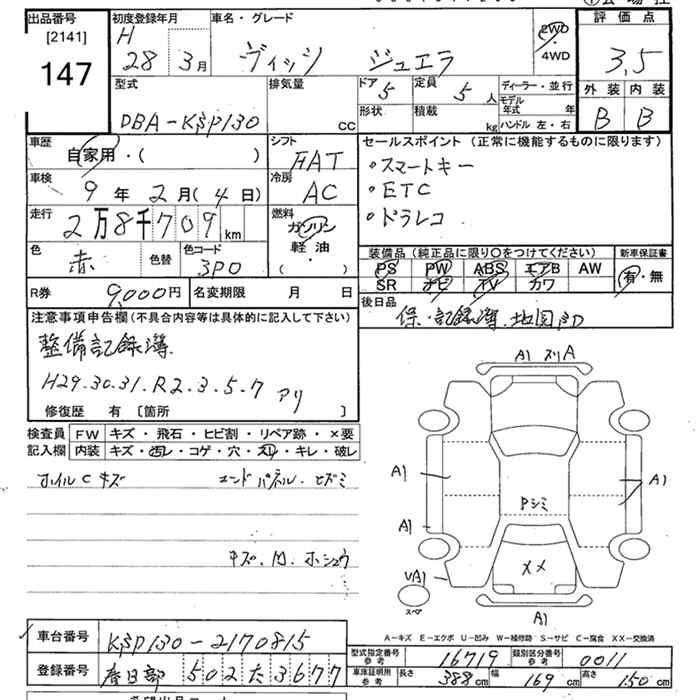 出品番号 [2141] 147
初度登録年月 H 28年 3月
車名・グレード ヴィッツ ジュエラ
2WD・4WD
評価点 3.5
外装 B 内装 B
型式 DBA-KSP130
排気量 CC
ドア 5 形状
定員 5人 積載 kg
ディーラー・並行
モデル年式 年
ハンドル 左・右
車歴 自家用・( )
シフト FAT
車検 9年 2月(4日)
冷房 AC
走行 2万8千709km
燃料 ガソリン 軽油・( )
色 赤 色替 色コード 3P0
セールスポイント (正常に機能するものに限ります)
・スマートキー
・ETC
・ドラレコ
装備品 (純正品に限り〇をつけてください)
PS PW ABS エアB AW
SR ナビ TV カワ
新車保証書 有・無
R券 9,000円 名変期限 月 日
後日品 保・記録簿、地図SD
注意事項申告欄(不具合内容等は具体的に記入して下さい)
整備記録簿
H29.30.31.R2.3.5.7 アリ
修復歴 有 [箇所 ]
検査員記入欄
FW キズ・飛石・ヒビ割・リペア跡・×要
内装 キズ・汚レ・コゲ・穴・スレ・キレ・破レ
ホイルC キズ エンドパネル・ヒズミ
キズ.凹.ホシュウ
A1 スリA
A1
A1
A1
Pシミ
XX
UA1
スペア
A1
A-キズ E-エクボ U-凹み W-補修跡 S-サビ C-腐食 XX-交換済
車台番号 KSP130-2170815
登録番号 春日部 502 た 3677
型式指定番号 参考 16719 類別区分番号 参考 0011
車庫証明用 参考 長さ 388cm 幅 169cm 高さ 150cm